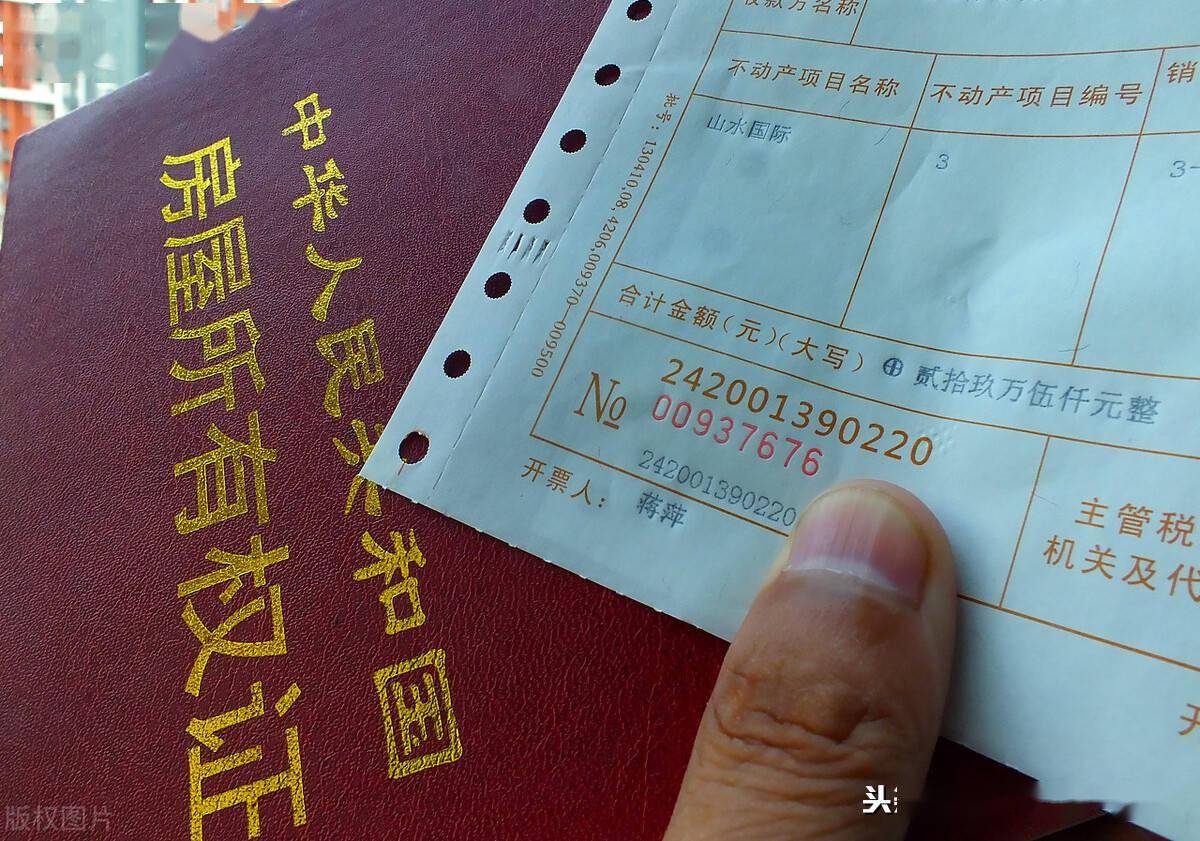 中华人民共和国
房屋所有权证
收款方名称
不动产项目名称
不动产项目编号
销
山水国际
3
3-
批号：130410.08.4206.009370—009500
合计金额(元)(大写)
⊕ 贰拾玖万伍仟元整
242001390220
№ 00937676
242001390220
开票人：
蒋萍
主管税
机关及代
开
版权图片
头